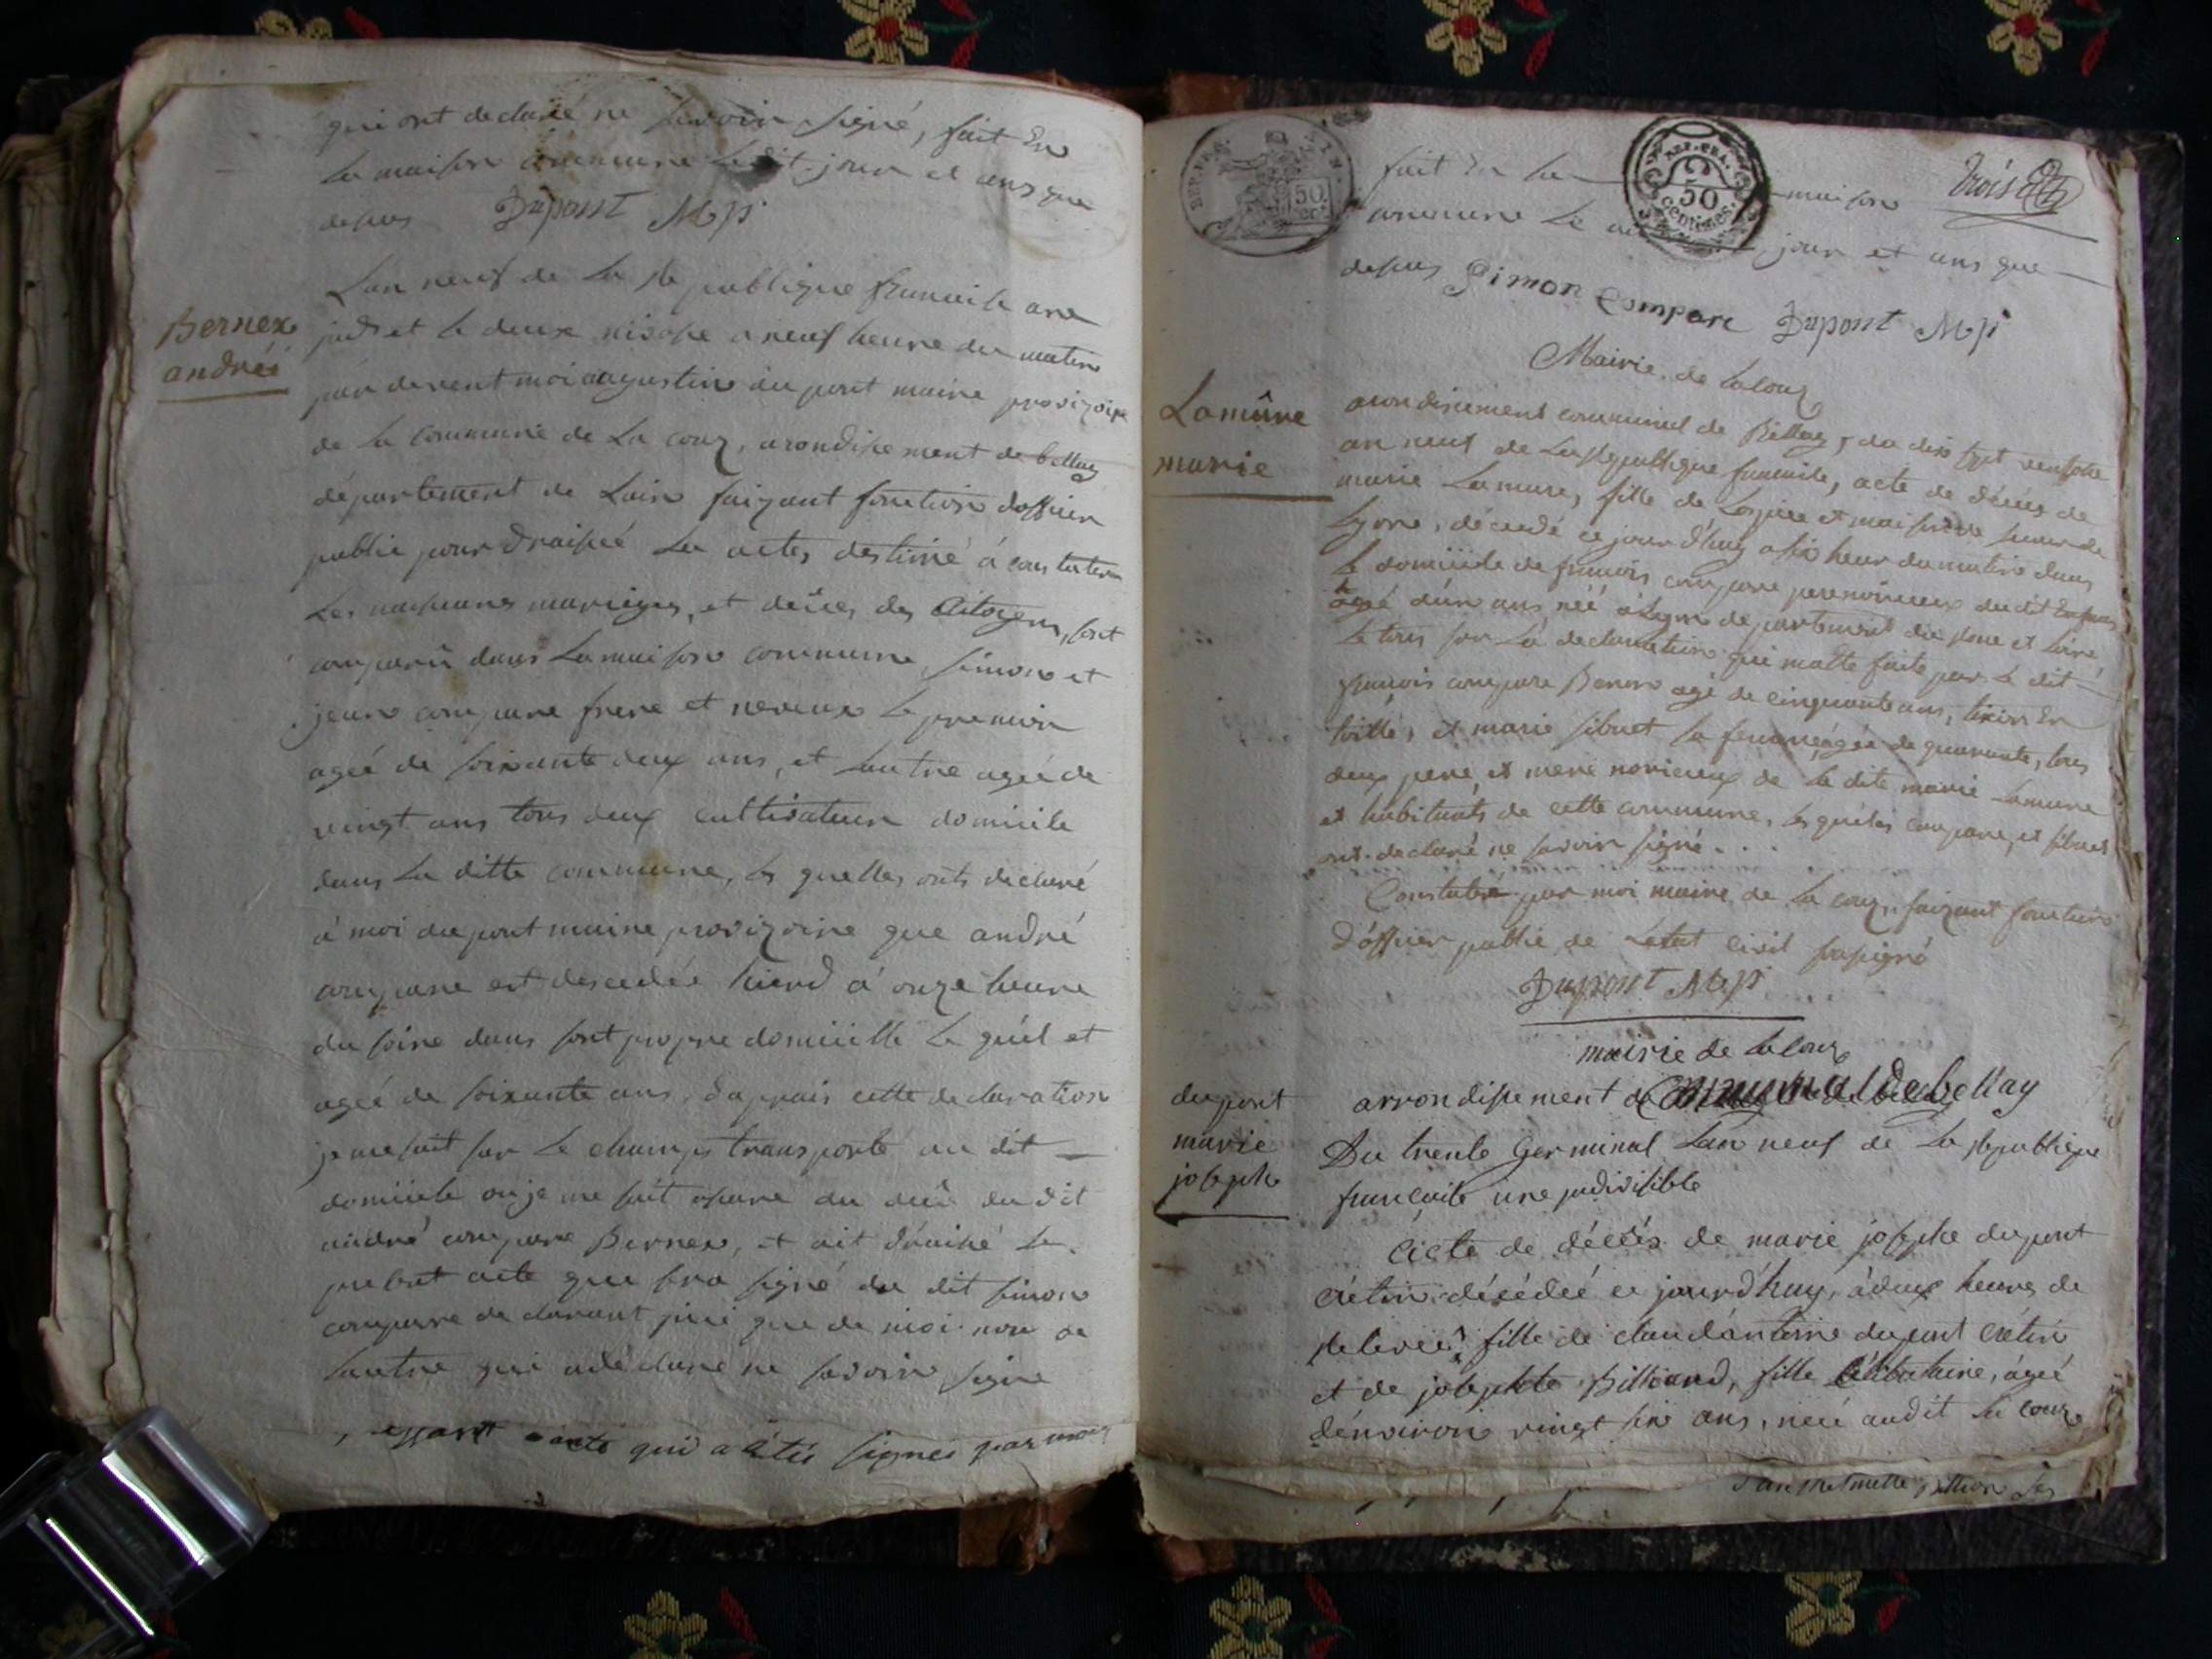 qui ont declaré ne savoir signé, fait En
la maison commune ledit jour et ans que
desus Dupont M p
Bernex
andréi
Lan neuf de la republique francaise une
jndi et le deux nivose a neuf heure du matin
par devent moi augustin dupont maire provizoire
de la commune de La couz, arondisement de bellay
département de Lain faizant fonction dofficier
public pour draissé les actes destiné à constater
Les naissances mariages, et décés des Citoyens, sont
comparu dans La maison commune, simon et
jean compare frere et neveux le premier
ageé de soixante deux ans, et lautre ageé de
vingt ans tous deux cultivateur domicile
dans La ditte commune, les quelles onts declaré
à moi dupont maire provizoire que andré
compare est descedée hierd à onze heure
du soire dans sont propre domicille le quel et
ageé de soixante ans, daprais cette declaration
je me suit sur Le champs transporté au dit
domicile ou je me suit assure du décé du dit
andré compare Bernex, et ait draissé le
present acte que sera signé du dit simon
compare declarant que de moi non de
lautre qui adéclaré ne savoir signe
acte qui a étéi signéi par moi
trois
fait En la maison
commune Le jour et ans que
desus Simon Compare Dupont M p
Mairie de lacouz
Lamûre
marie
arondisement communal de Bellay, du dix sept ventose
an neuf de La republique francaise, acte de décés de
marie Lamure, fille de Lospice et maison de
Lyon, décedé ce jourd'huy a six heur du matin dans
le domicile de francois compare pere du dit Enfans
agé dun ans, néé à Lyon departement du rone et loire,
le tous sur La declaration qui matte faite par le dit
francois compare Benon agé de cinquante ans,
et marie sibuet sa femme agéé de quarante, tous
deux pere, et mere de la dite marie Lamure
et habitants de cette commune, les quéles compare, et sibuet
ont declaré ne savoir signé.
Constaté par moi maire de la couz, faizant fonction
d'officier public de Létat Civil
Dupont M p
mairie de lacouz
dupont
marie
josephe
arrondissement de bellay
Du trente Germinal Lan neuf de La republique
francaise une jndivisible
acte de décés de marie josephe dupont
crétin désédéé ce jourd'huy, à deux heures de
fille de claudántoine dupont crétin
et de josephte Billiand, fille Célibataire, ágéé
dénviron vingt six ans, néé audit la couz